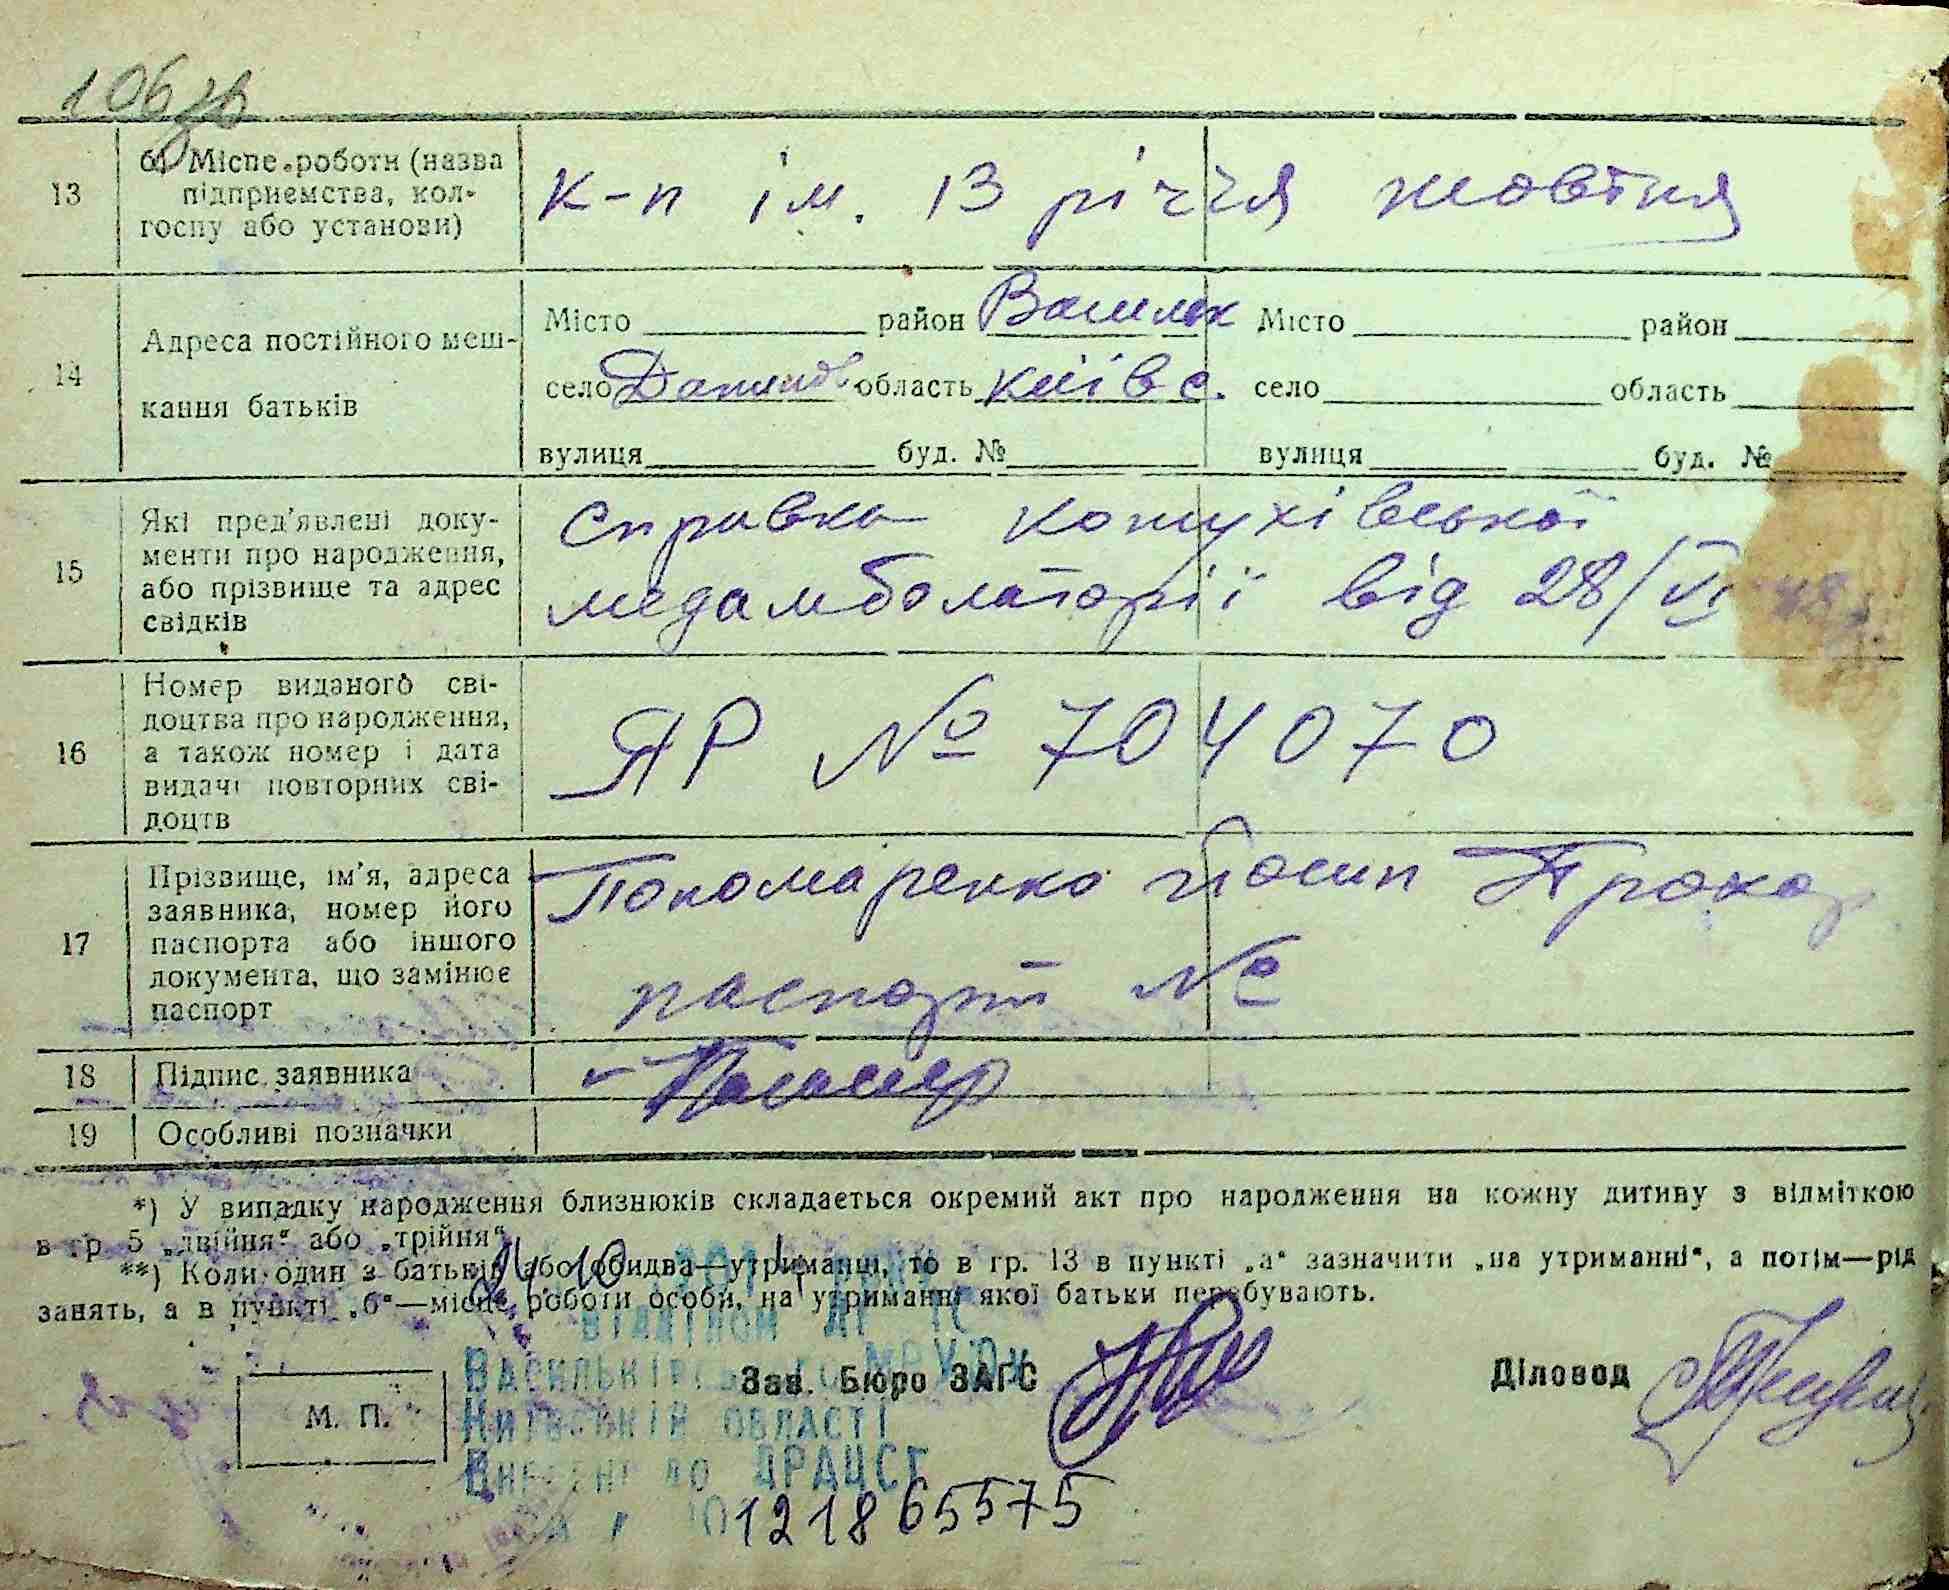 106 зв
13 б) Місце роботи (назва підприємства, колгоспу або установи)
к-п ім. 13 річчя жовтня
14 Адреса постійного мешкання батьків
Місто район Васильк Місто район
село область Київс. село область
вулиця буд. № вулиця буд. №
15 Які пред'явлені документи про народження, або прізвище та адрес свідків
Справка
медамболаторії від 28/VI 48 р.
16 Номер виданого свідоцтва про народження, а також номер і дата видачі повторних свідоцтв
ЯР № 704070
17 Прізвище, ім'я, адреса заявника, номер його паспорта або іншого документа, що замінює паспорт
Пономаренко Йосип Прокоp
паспорт №
18 Підпис заявника
19 Особливі позначки
*) У випадку народження близнюків складається окремий акт про народження на кожну дитину з відміткою
в гр 5 „двійня“ або „трійня“
**) Коли один з батьків або обидва—утриманці, то в гр. 13 в пункті „а“ зазначити „на утриманні“, а потім—рід
занять, а в пункті „б“—місце роботи особи, на утриманні якої батьки перебувають.
відділом ДР ЦС
Васильківського МРУЮ
М. П. Зав. Бюро ЗАГС Діловод
Київській області
Внесені до ДРАЦСГ
0121865575